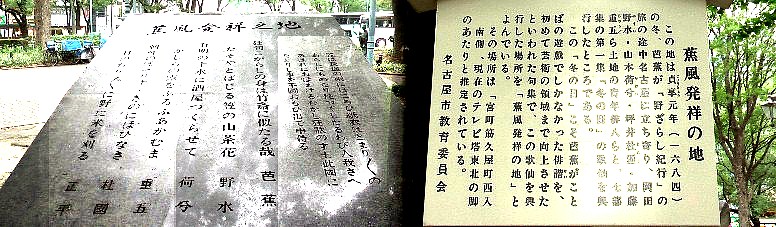 蕉風發祥之地
こがらしの身は竹斎に似たる哉 芭蕉
たそやとばしる笠の山茶花 野水
有明の主水に酒屋つくらせて 荷兮
かしらの露をふるふあかむま 重五
のにほひなき 杜國
に野に米を刈る 正平
蕉風発祥の地
この地は貞享元年(一六八四)
の冬、芭蕉が『野ざらし紀行』の
旅の途中名古屋に立ち寄り、岡田
野水・山本荷兮・坪井杜国・加藤
重五ら土地の青年俳人らと、七部
集の第一集『冬の日』の歌仙を興
行したところである。
この『冬の日』こそ芭蕉がこと
ばの遊戯でしかなかった俳諧を、
初めて芸術の領域まで向上させた
といわれた句集で、この歌仙を興
行した場所を「蕉風発祥の地」と
よんでいる。
その場所は、宮町筋久屋町西入
南側、現在のテレビ塔東北の脚
のあたりと推定されている。
名古屋市教育委員会